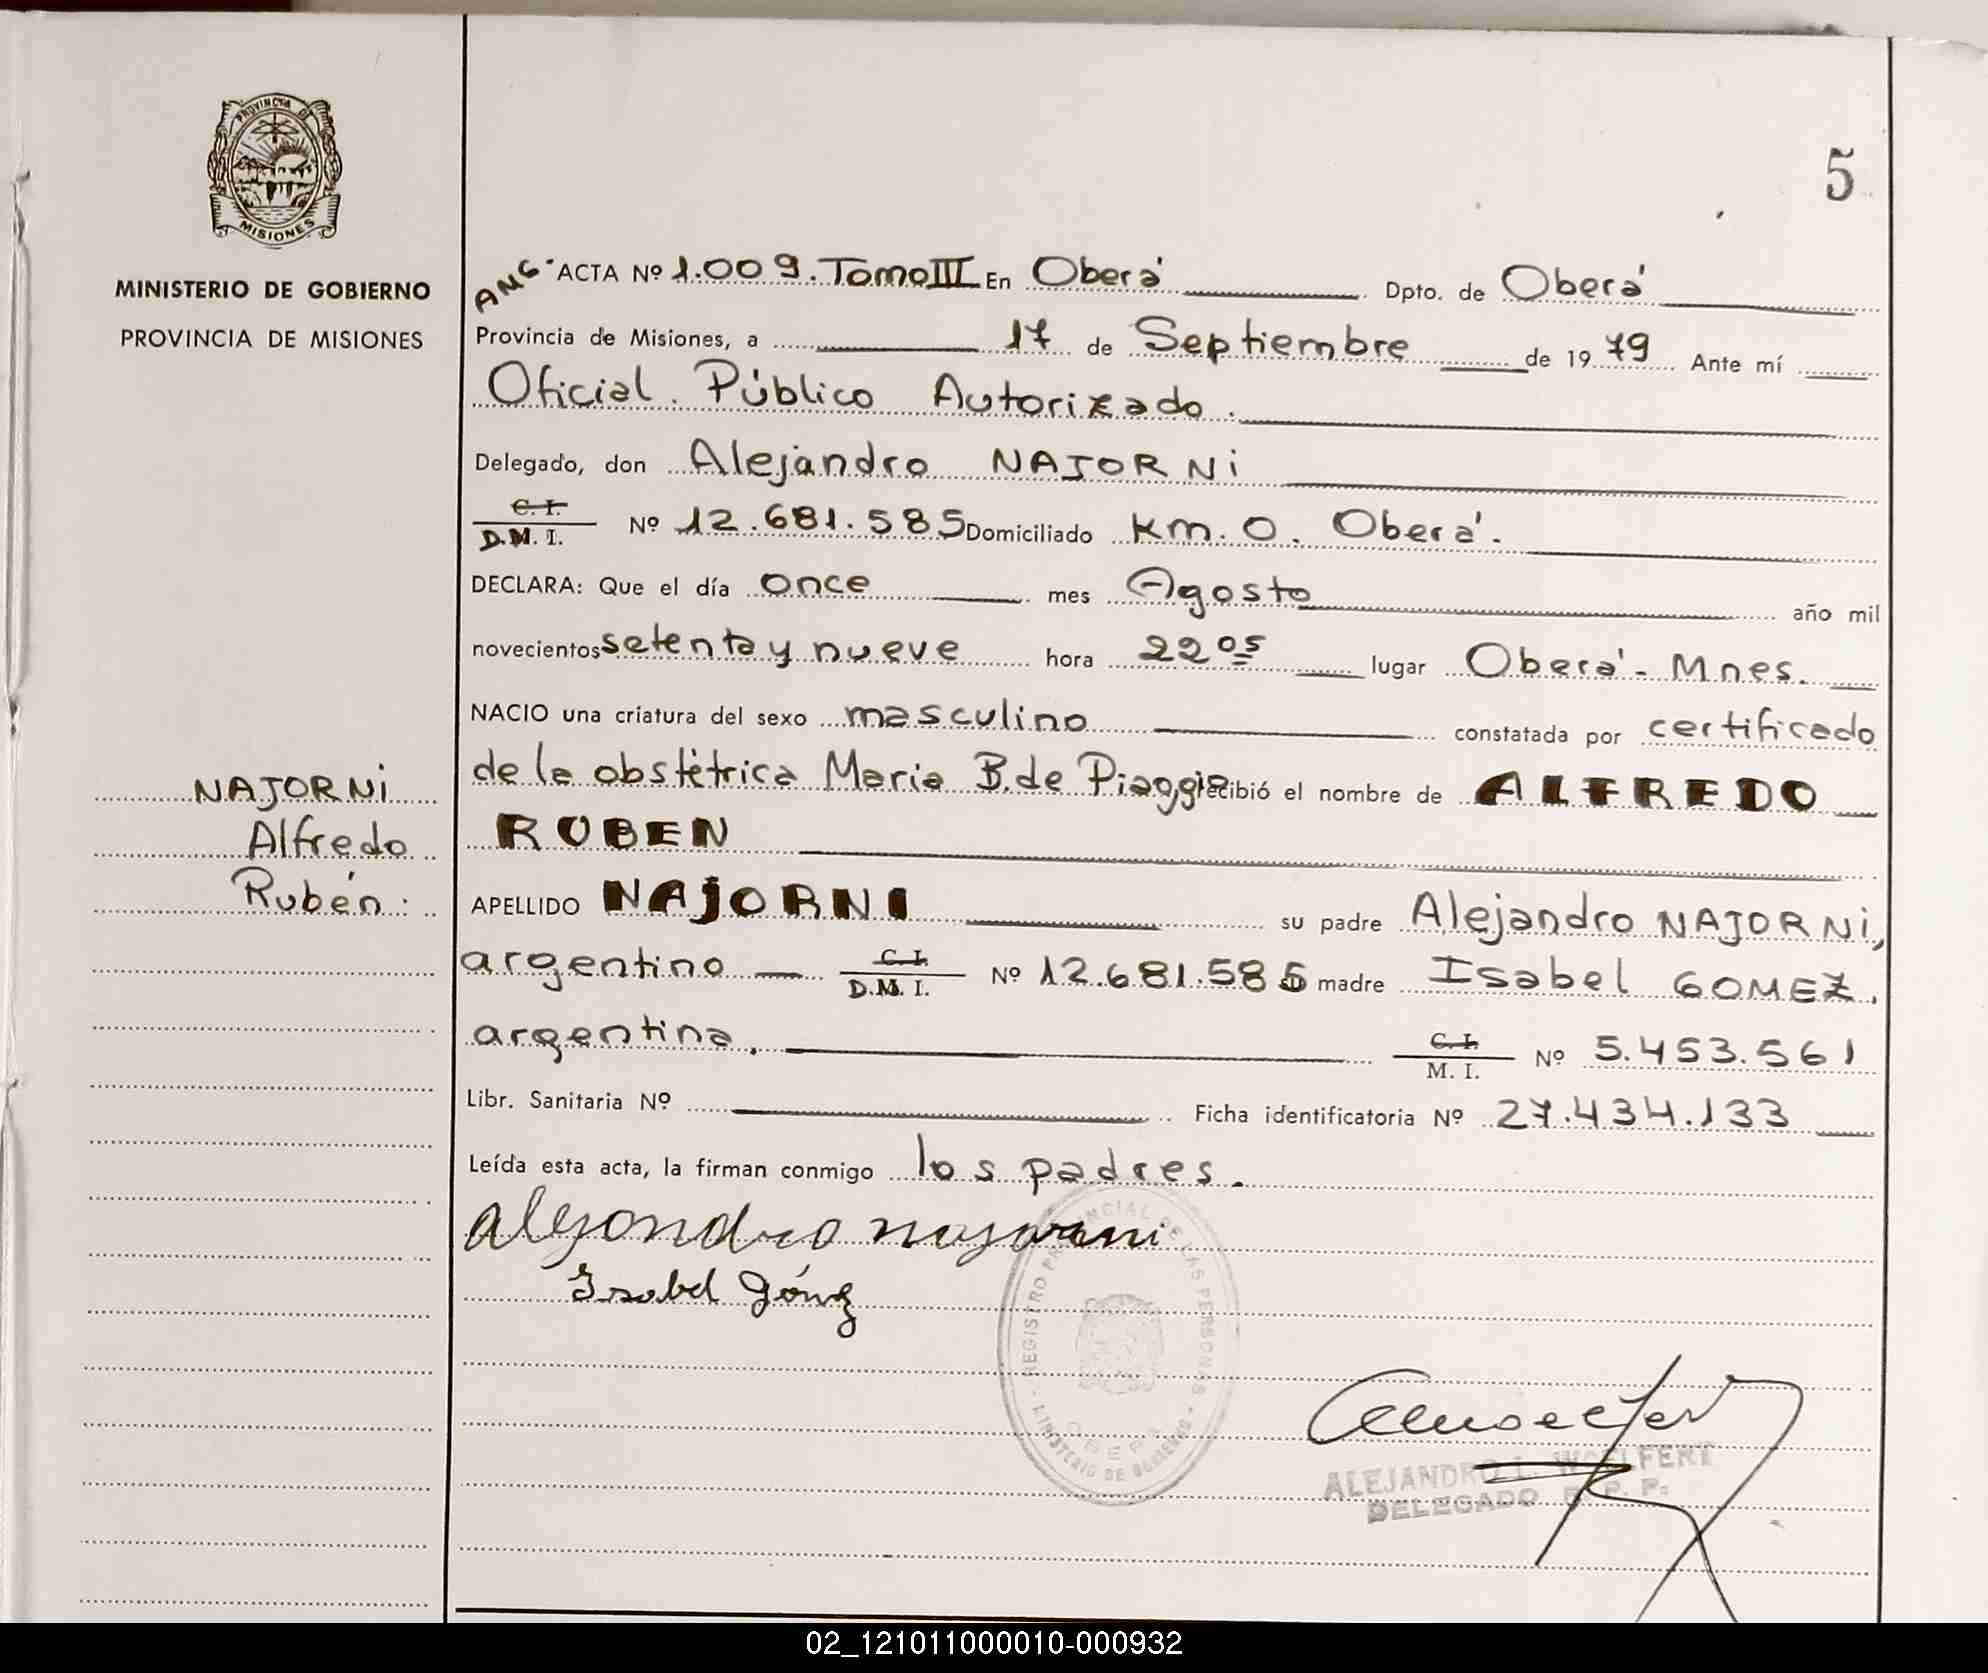 5
PROVINCIA DE
MISIONES
MINISTERIO DE GOBIERNO
PROVINCIA DE MISIONES
NAJORNI
Alfredo
Rubén.
ACTA Nº 1.009. Tomo III En Oberá Dpto. de Oberá
Provincia de Misiones, a 17 de Septiembre de 1979 Ante mí
Oficial Público Autorizado.
Delegado, don Alejandro NAJORNI
C. I.
D.M. I. Nº 12.681.585 Domiciliado Km. 0. Oberá.
DECLARA: Que el día once mes Agosto año mil
novecientos setenta y nueve hora 22 05 lugar Oberá - Mnes.
NACIO una criatura del sexo masculino constatada por certificado
de la obstétrica Maria B. de Piaggio recibió el nombre de ALFREDO
RUBEN
APELLIDO NAJORNI su padre Alejandro NAJORNI,
argentino C. I.
D.M. I. Nº 12.681.585 madre Isabel GOMEZ.
argentina. C. I.
M. I. Nº 5.453.561
Libr. Sanitaria Nº Ficha identificatoria Nº 27.434.133
Leída esta acta, la firman conmigo los padres.
Alejandro Najorni
Isabel Gómez
REGISTRO PROVINCIAL DE LAS PERSONAS
MINISTERIO DE GOBIERNO
OBERA
ALEJANDRO L. WOELFERT
DELEGADO R. P. P.
02_121011000010-000932